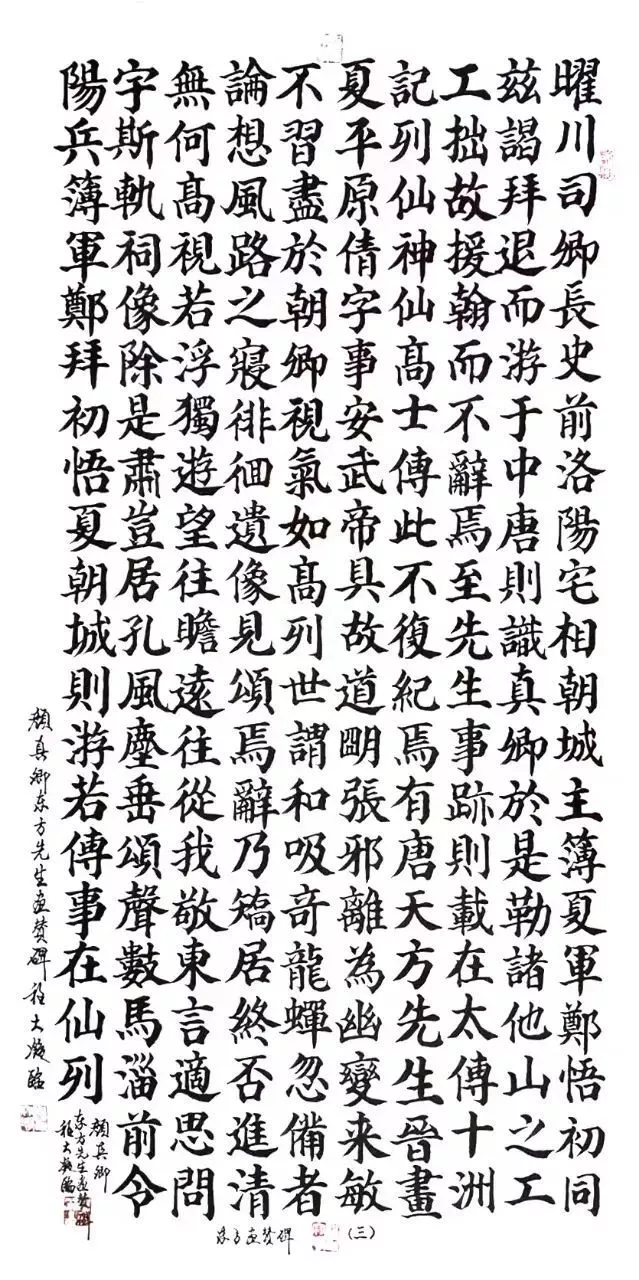 曜川司卿長史前洛陽宅相朝城主簿夏軍鄭悟初同
兹謁拜退而游于中唐則識真卿於是勒諸他山之工
工拙故援翰而不辭焉至先生事跡則載在太傳十洲
記列仙神仙髙士傳此不復紀焉有唐天方先生晉畫
夏平原倩字事安武帝具故道明張邪離為幽變来敏
不習盡於朝卿視氣如髙列世謂和吸奇龍蟬忽備者
論想風路之寢徘徊遺像見頌焉辭乃居終否進清
無何髙視若浮獨遊望往瞻遠往從我敬東言適思問
宇斯軌祠像除是肅豈居孔風塵垂頌聲數馬淄前令
陽兵簿軍鄭拜初悟夏朝城則游若傳事在仙列
顏真卿东方先生画赞碑程大凝临
顏真卿
东方先生画赞碑
程大凝临
东方画赞碑（三）